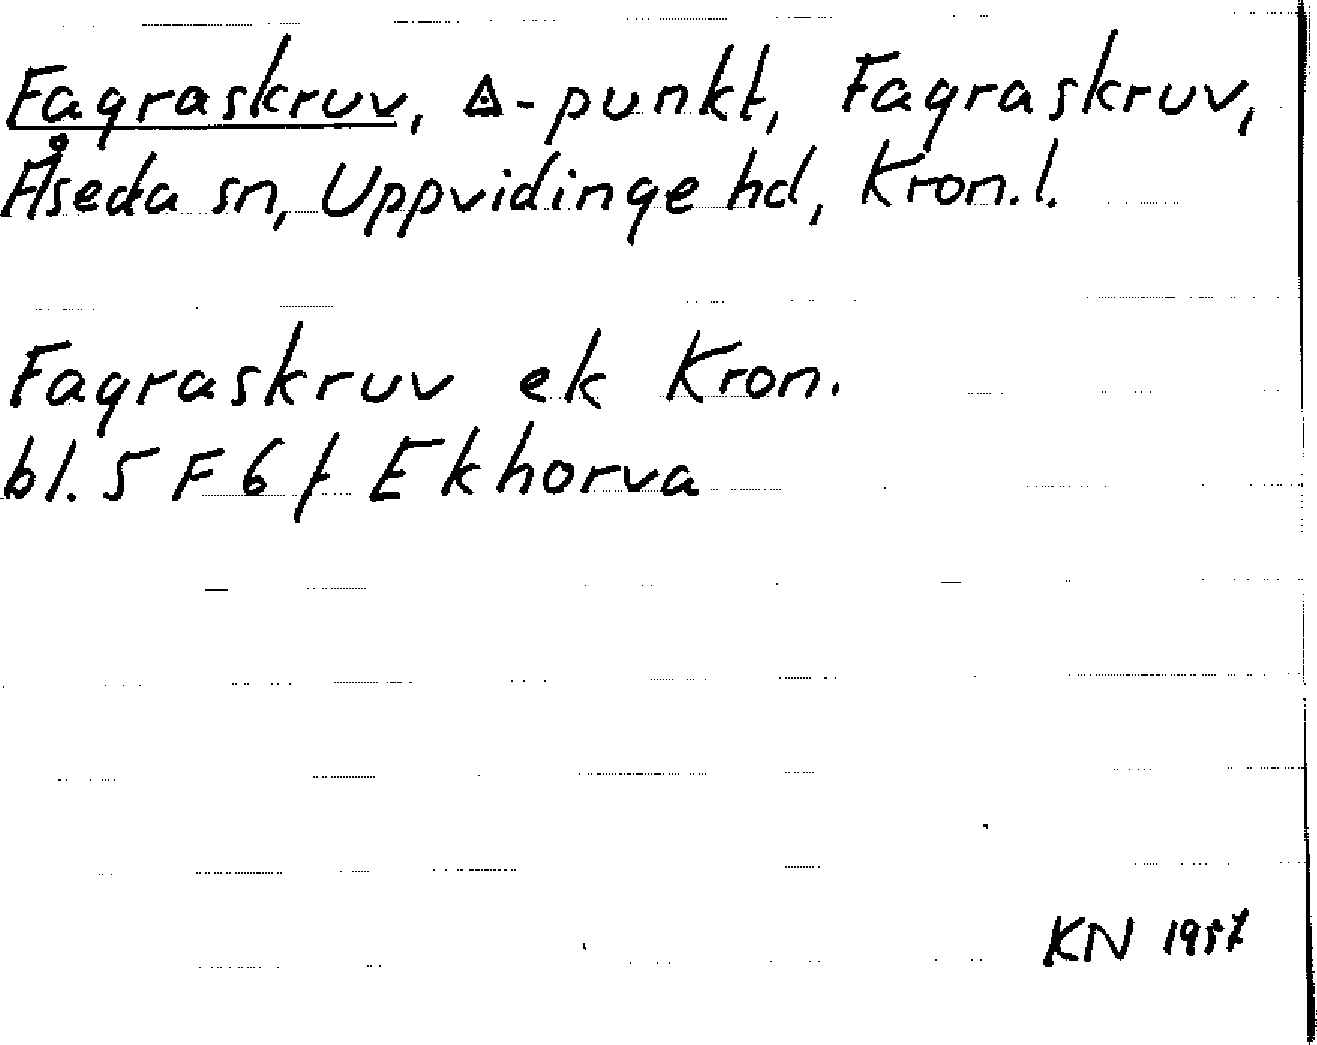 Fagraskruv, △-punkt, Fagraskruv,
Åseda sn, Uppvidinge hd, Kron.l.
Fagraskruv ek Kron.
bl. 5 F 6 f Ekhorva
KN 1957